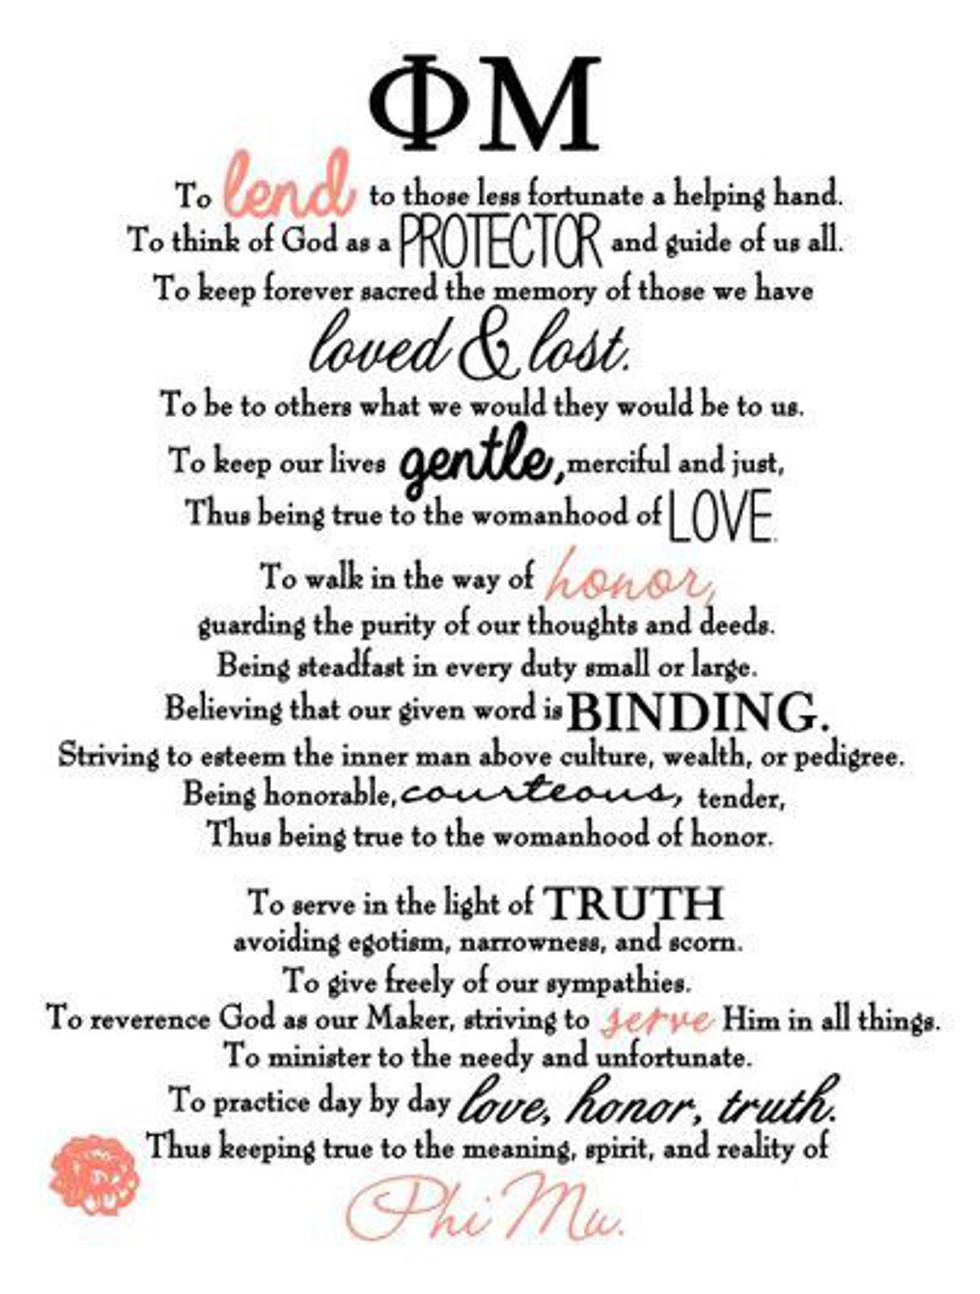 ΦΜ
To lend to those less fortunate a helping hand.
To think of God as a PROTECTOR and guide of us all.
To keep forever sacred the memory of those we have
loved & lost.
To be to others what we would they would be to us.
To keep our lives gentle, merciful and just,
Thus being true to the womanhood of LOVE.
To walk in the way of honor,
guarding the purity of our thoughts and deeds.
Being steadfast in every duty small or large.
Believing that our given word is BINDING.
Striving to esteem the inner man above culture, wealth, or pedigree.
Being honorable, courteous, tender,
Thus being true to the womanhood of honor.
To serve in the light of TRUTH
avoiding egotism, narrowness, and scorn.
To give freely of our sympathies.
To reverence God as our Maker, striving to serve Him in all things.
To minister to the needy and unfortunate.
To practice day by day love, honor, truth.
Thus keeping true to the meaning, spirit, and reality of
Phi Mu.